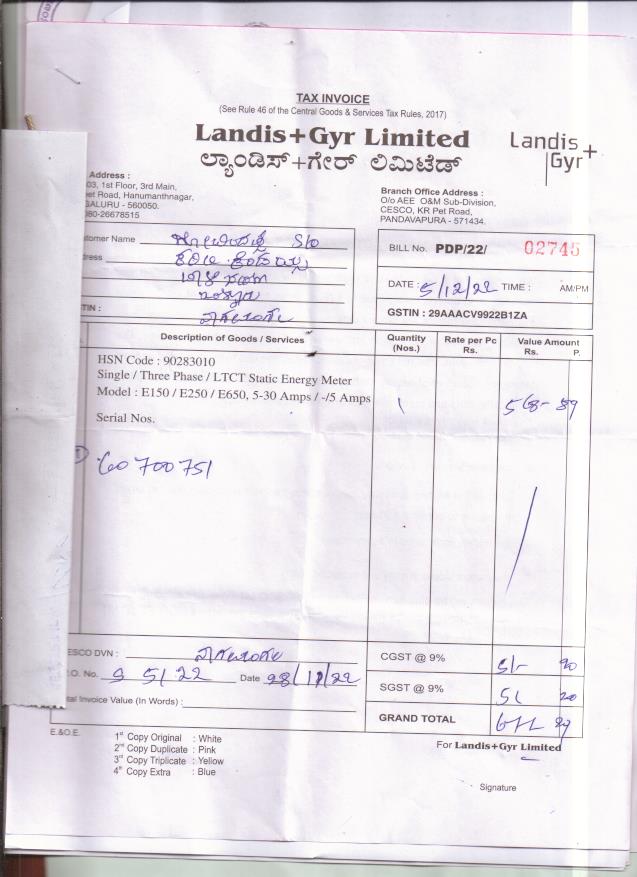 TAX INVOICE
(See Rule 46 of the Central Goods & Services Tax Rules, 2017)
Landis+Gyr Limited
ಲ್ಯಾಂಡಿಸ್+ಗೇರ್ ಲಿಮಿಟೆಡ್
Landis+
Gyr
Address :
03, 1st Floor, 3rd Main,
et Road, Hanumanthnagar,
GALURU - 560050.
080-26678515
Branch Office Address :
O/o AEE O&M Sub-Division,
CESCO, KR Pet Road,
PANDAVAPURA - 571434.
tomer Name S/o
dress
TIN :
BILL No. PDP/22/ 02745
DATE : 5/12/22 TIME : AM/PM
GSTIN : 29AAACV9922B1ZA
Description of Goods / Services
Quantity (Nos.)
Rate per Pc Rs.
Value Amount Rs. P.
HSN Code : 90283010
Single / Three Phase / LTCT Static Energy Meter
Model : E150 / E250 / E650, 5-30 Amps / -/5 Amps
1 568-89
Serial Nos.
60700751
ESCO DVN :
.O. No. Date 28/11/22
tal Invoice Value (In Words) :
CGST @ 9% 51- 20
SGST @ 9% 51 20
GRAND TOTAL
E.&O.E.
1st Copy Original : White
2nd Copy Duplicate : Pink
3rd Copy Triplicate : Yellow
4th Copy Extra : Blue
For Landis+Gyr Limited
Signature